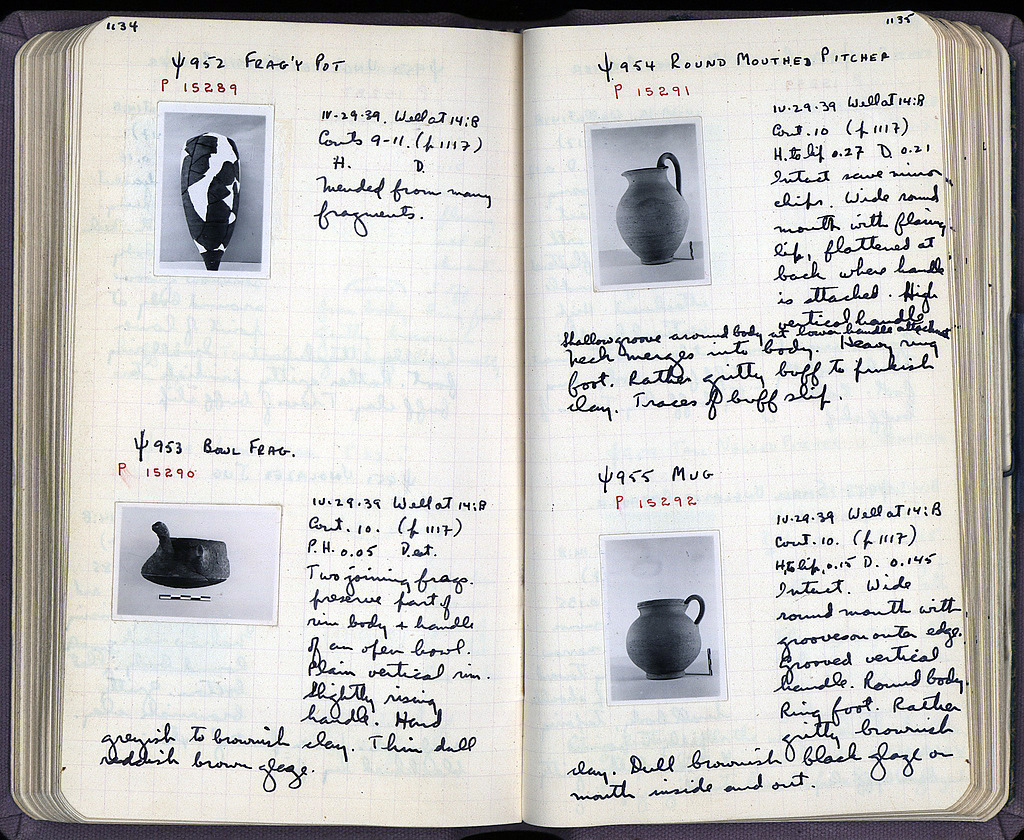 1134
ψ952 FRAG'Y POT
P 15289
IV-29-39. Well at 14:B
Conts 9-11. (p 1117)
H. D.
Mended from many
fragments.
ψ953 BOWL FRAG.
P 15290
IV-29-39 Well at 14:B
Cont. 10. (p 1117)
P.H. 0.05 D. est.
Two joining frags.
preserve part of
rim body + handle
of an open bowl.
Plain vertical rim.
Slightly rising
handle. Hard
greyish to brownish clay. Thin dull
reddish brown glaze.
1135
ψ954 ROUND MOUTHED PITCHER
P 15291
IV-29-39 Well at 14:B
Cont. 10 (p 1117)
H. to lip 0.27 D. 0.21
Intact save minor
chips. Wide round
mouth with flaring
lip, flattened at
back where handle
is attached. High
vertical handle.
Shallow groove around body at lower handle attachmt
Neck merges into body. Heavy ring
foot. Rather gritty buff to pinkish
clay. Traces of buff slip.
ψ955 MUG
P 15292
IV-29-39 Well at 14:B
Cont. 10. (p 1117)
H. to lip, 0.15 D. 0.145
Intact. Wide
round mouth with
grooves on outer edge.
Grooved vertical
handle. Round body.
Ring foot. Rather
gritty brownish
clay. Dull brownish black glaze on
mouth inside and out.